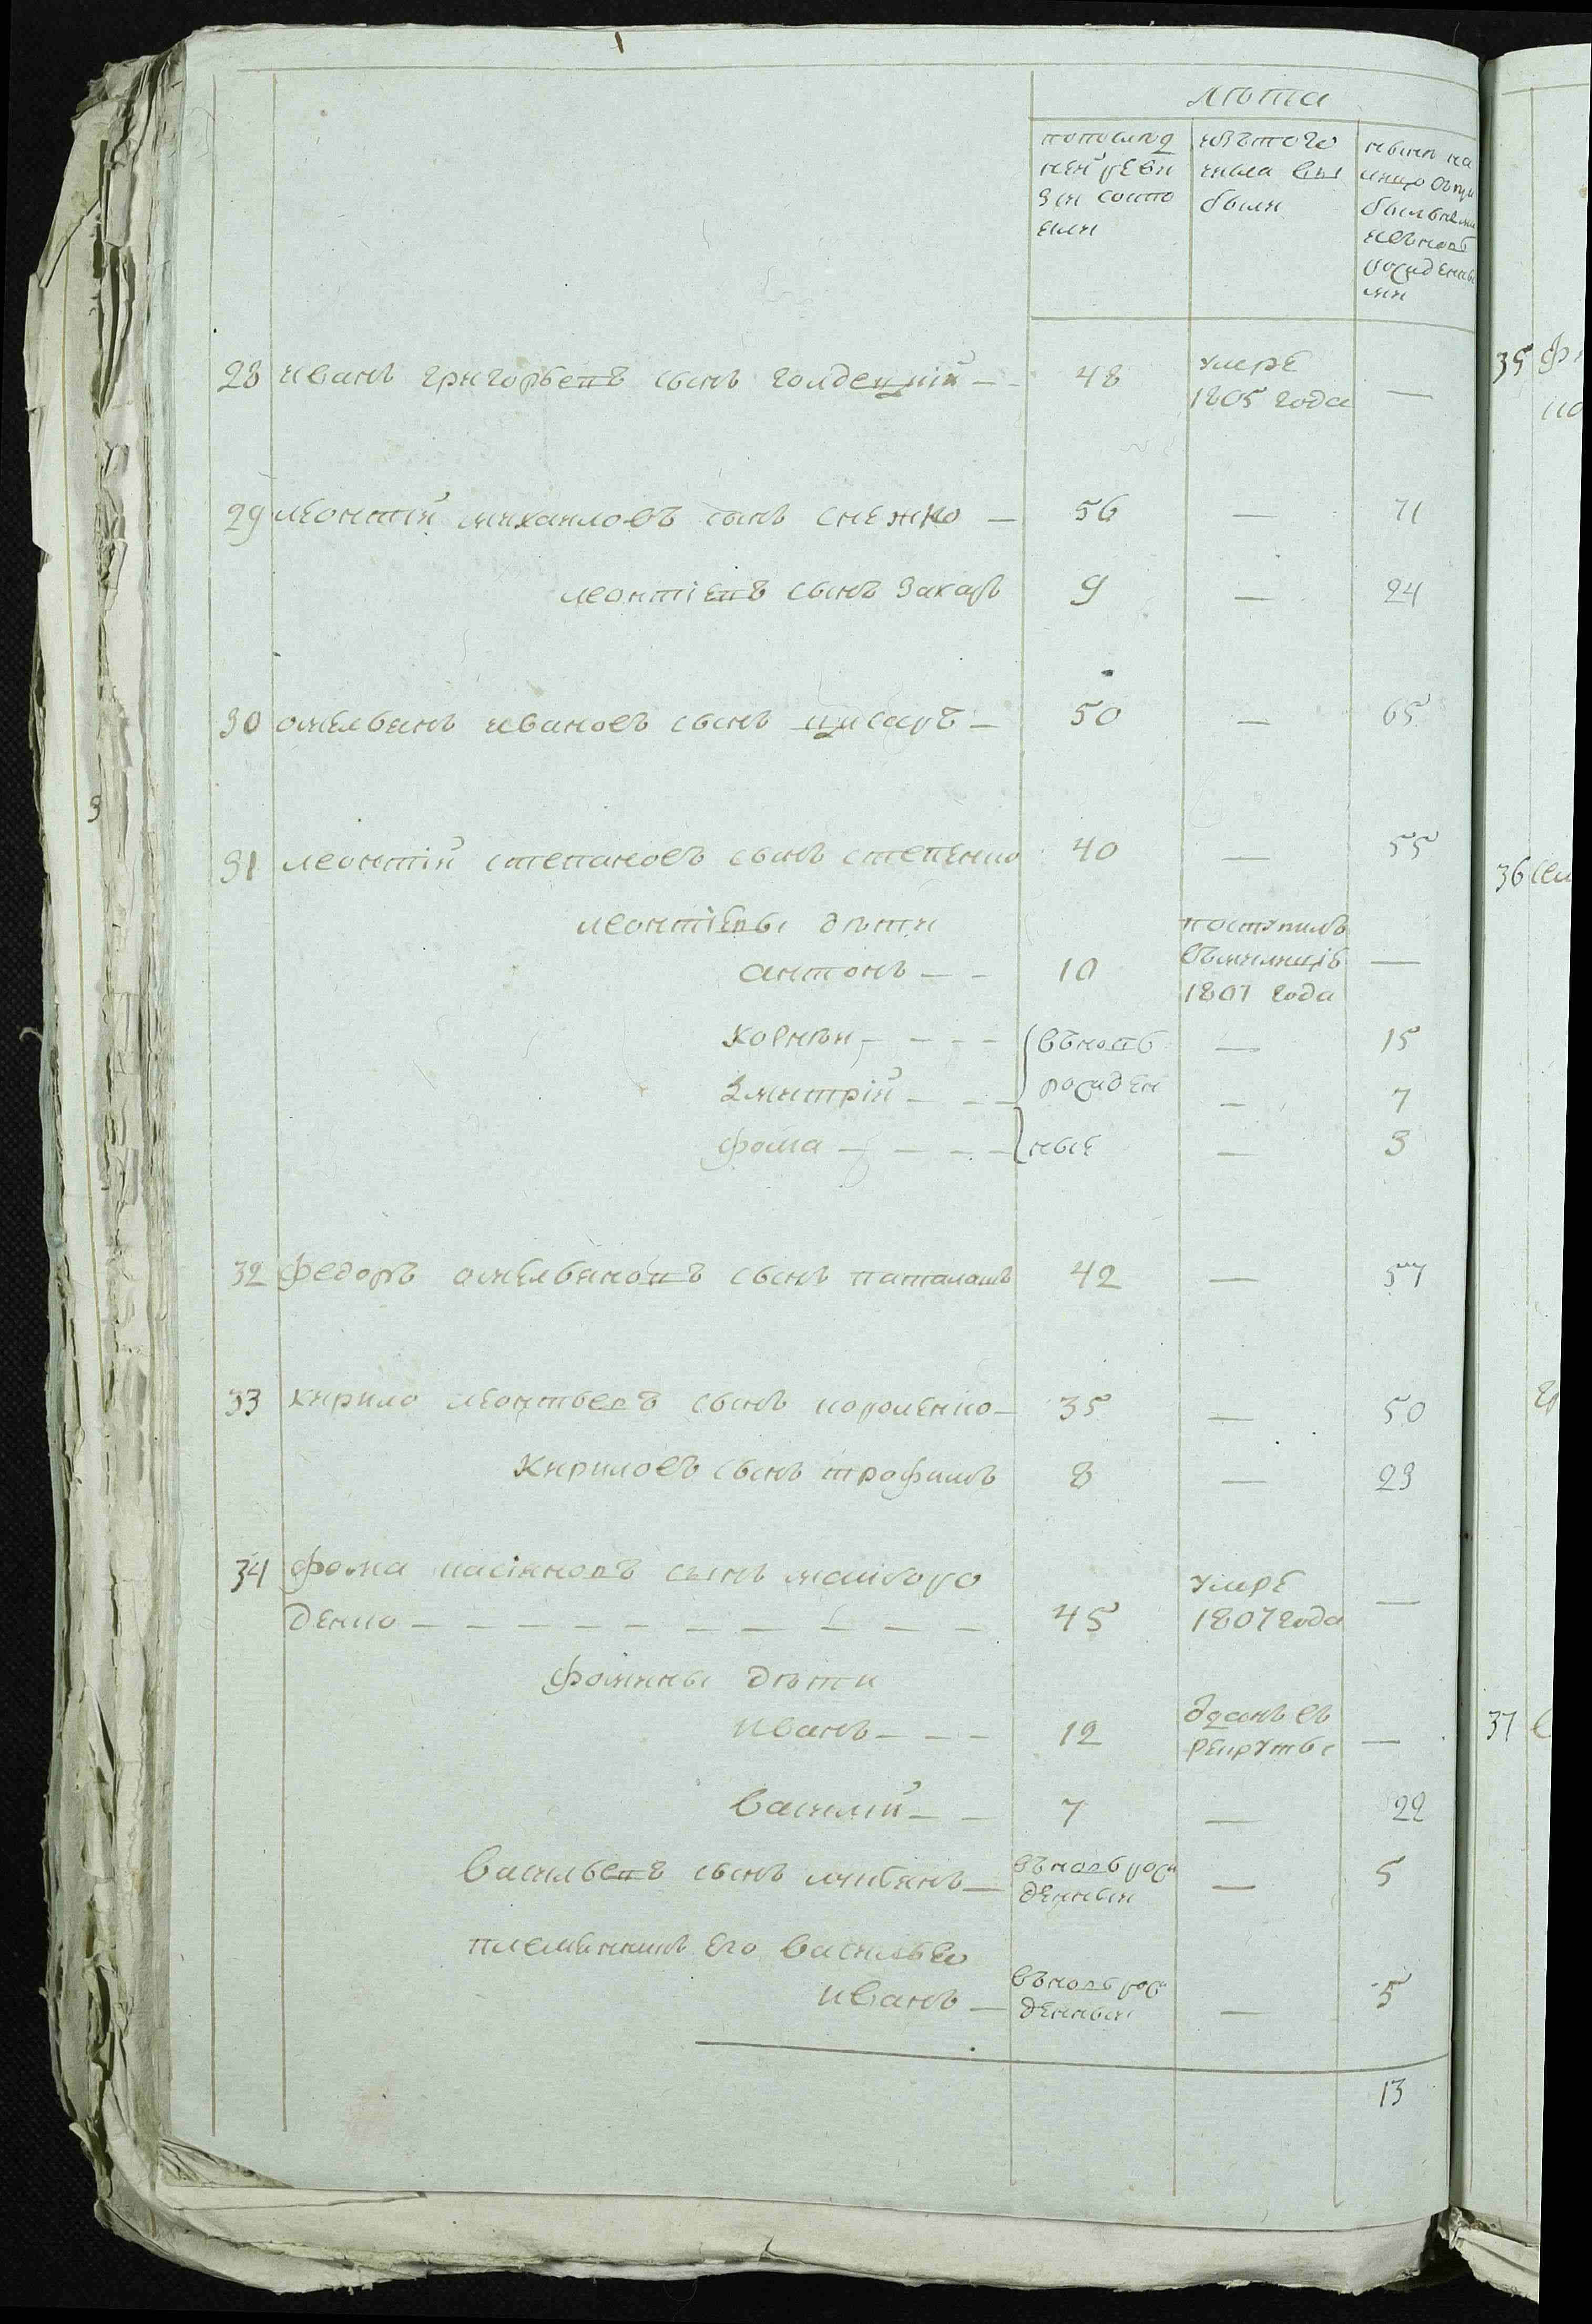 лѣта
попослѣд
ней реви
зіи состо
яли
изътого
числа вы
были
нынѣ на
лицо съпри
былыми
ивъновь
рожденны
ми
28 иванъ григорьевъ сынъ голдецкій — 48 умре
1805 года —
29 леонтій михаиловъ сынъ снежко — 56 — 71
леонтіевъ сынъ Захаръ 9 — 24
30 омельянъ ивановъ сынъ цисаръ — 50 — 65
31 леонтій степановъ сынъ степенко 40 — 55
леонтіевы дѣти
антонъ — — 10 поступилъ
въмилицію
1807 года —
Корнѣй — — — — въновь — 15
Дмитрій — — — рожден — 7
фома — — — — ные — 3
32 федоръ омельяновъ сынъ паталашъ 42 — 57
33 кирило леонтьевъ сынъ короленко — 35 — 50
Кириловъ сынъ трофимъ 8 — 23
34 фома касіяновъ сынъ маиборо
денко — — — — — — — — — — 45 умре
1807 года —
фомины дѣти
иванъ — — — 12 отданъ въ
рекруты —
василій — — 7 — 22
васильевъ сынъ лукьянъ — въновь рож
денный — 5
племянникъ его васильев
иванъ — въновь рож
денный — 5
13
35
36
37